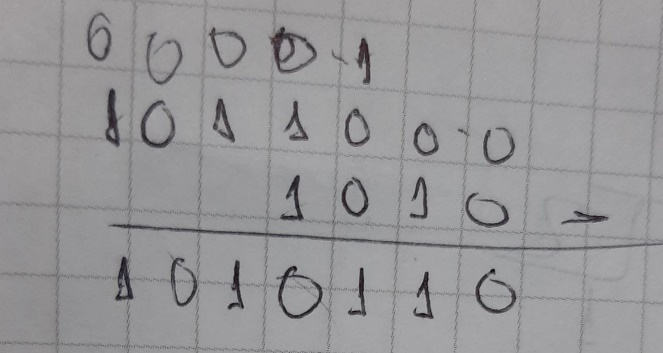 0 0 0 0 1
1 0 1 1 0 0 0
1 0 1 0 -
1 0 1 0 1 1 0